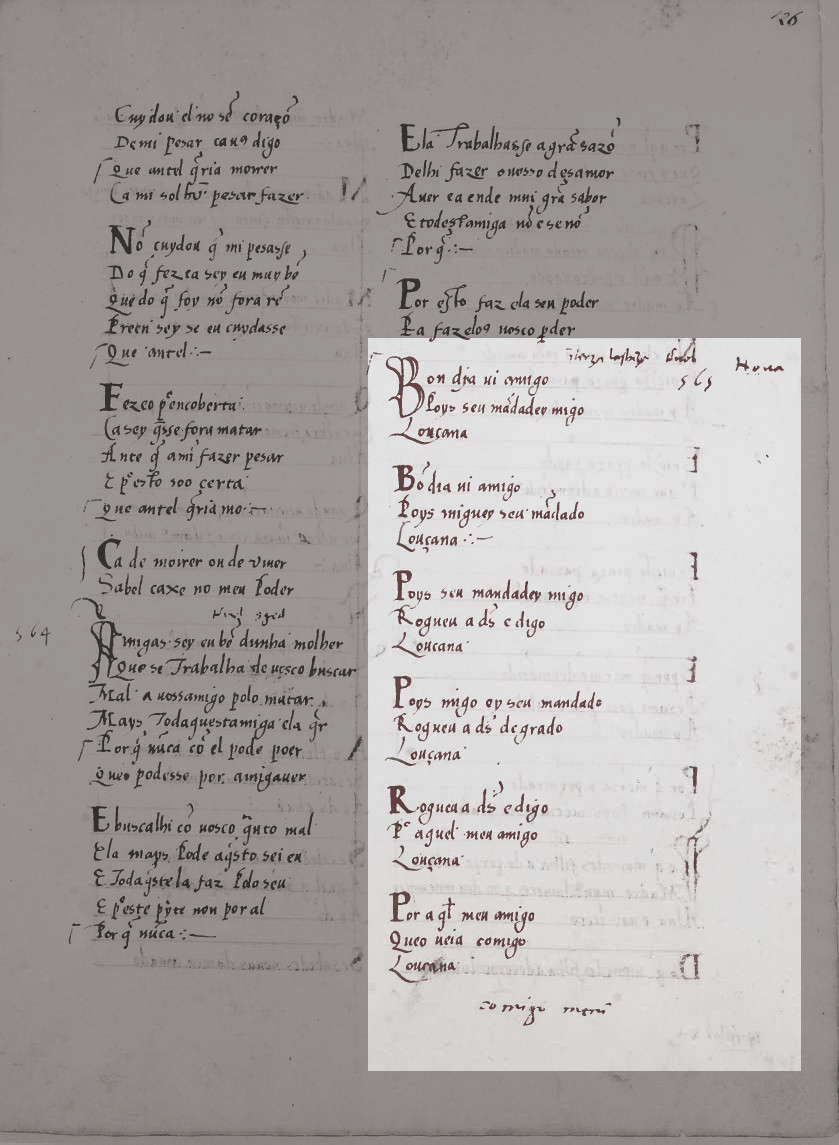 126
Cuydou el no seu coraçõ
De mi pesar ca uꝯ digo
Que antel q̃ria moirer
Ca mi sol hũ pesar fazer
Nõ cuydou q̃ mi pesasse
Do q̃ fez ca sey eu muy bẽ
Que do q̃ foy nõ fora rẽ
Preen sey se eu cuydasse
Que antel :—
Fezeo pᵉ encoberta
Ca sey q̃sse fora matar
Ante q̃ ami fazer pesar
E pᵉ esto soo certa
Que antel q̃ria mo :—
Ca de moirer ou de viuer
Sabel caxe no meu poder
564
Amigas sey eu bẽ dunha molher
Que se trabalha de uosco buscar
Mal a uossamigo polo matar
Mays todaquestamiga ela q̃r
Por q̃ nũca cõ el pode poer
Queo podesse por amigauer
E buscalhi cõ uosco q̃nto mal
Ela mays pode aq̃sto sei eu
E todaq̃ste la faz pᵉdo seu
E pᵉ este pᵉyte non por al
Por q̃ nũca :—
Ela trabalhasse a grã sazõ
Delhi fazer o uosso desamor
Auer ea ende mui grã sabor
E todestamiga nõ e se nõ
Por q̃ :—
Por esto faz ela seu poder
Pa fazeloꝯ uosco pᵉder
565
Nova
Bon dia ui amigo
Poys seu mãdadey migo
Louçana
Bõ dia ui amigo
Poys miguey seu mãdado
Louçana :—
Poys seu mandadey migo
Rogueu a ds̃ e digo
Loucana
Poys migo ey seu mandado
Rogueu a ds̃ de grado
Louçana
Rogueu a ds̃ e digo
Pᵉ aquel meu amigo
Louçana
Por a q̃l meu amigo
Queo ueia comigo
Louçana
comigo